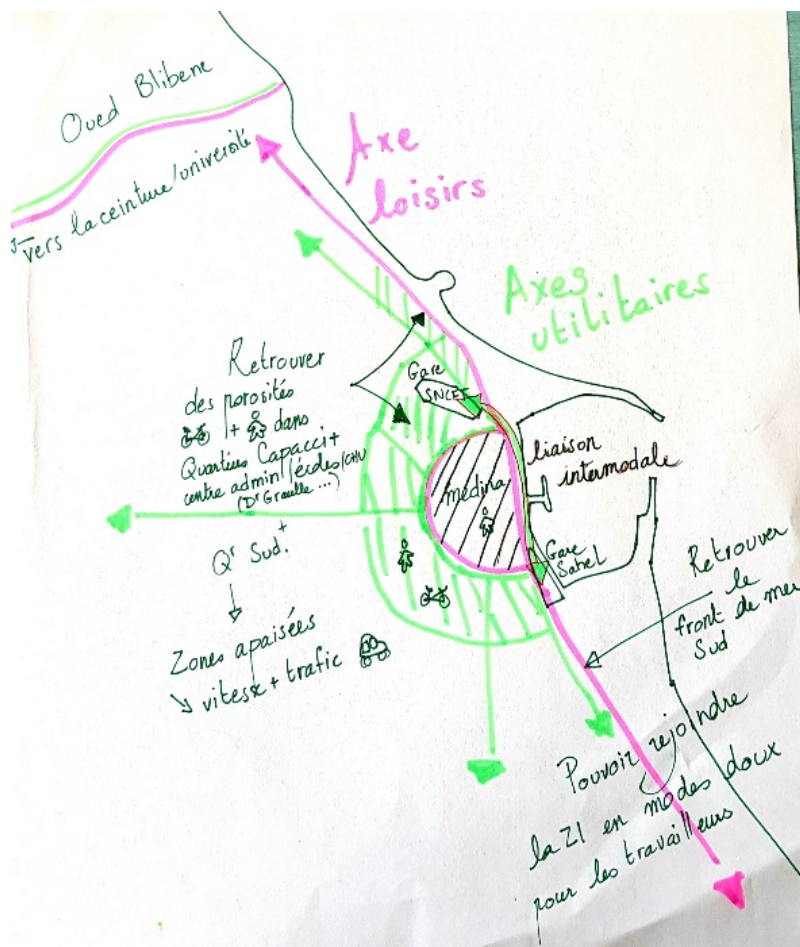 Oued Blibene
vers la ceinture/université
Axe
loisirs
Axes
utilitaires
Retrouver
des porosités
+ dans
Quartiers Capacci +
centre admin/écoles/CHU
(Dr Graulle ...)
Gare
SNCFT
liaison
intermodale
médina
Gare
Sahel
Qr Sud. +
Zones apaisées
↘ vitesse + trafic
Retrouver
le
front de mer
Sud
Pouvoir rejoindre
la ZI en modes doux
pour les travailleurs